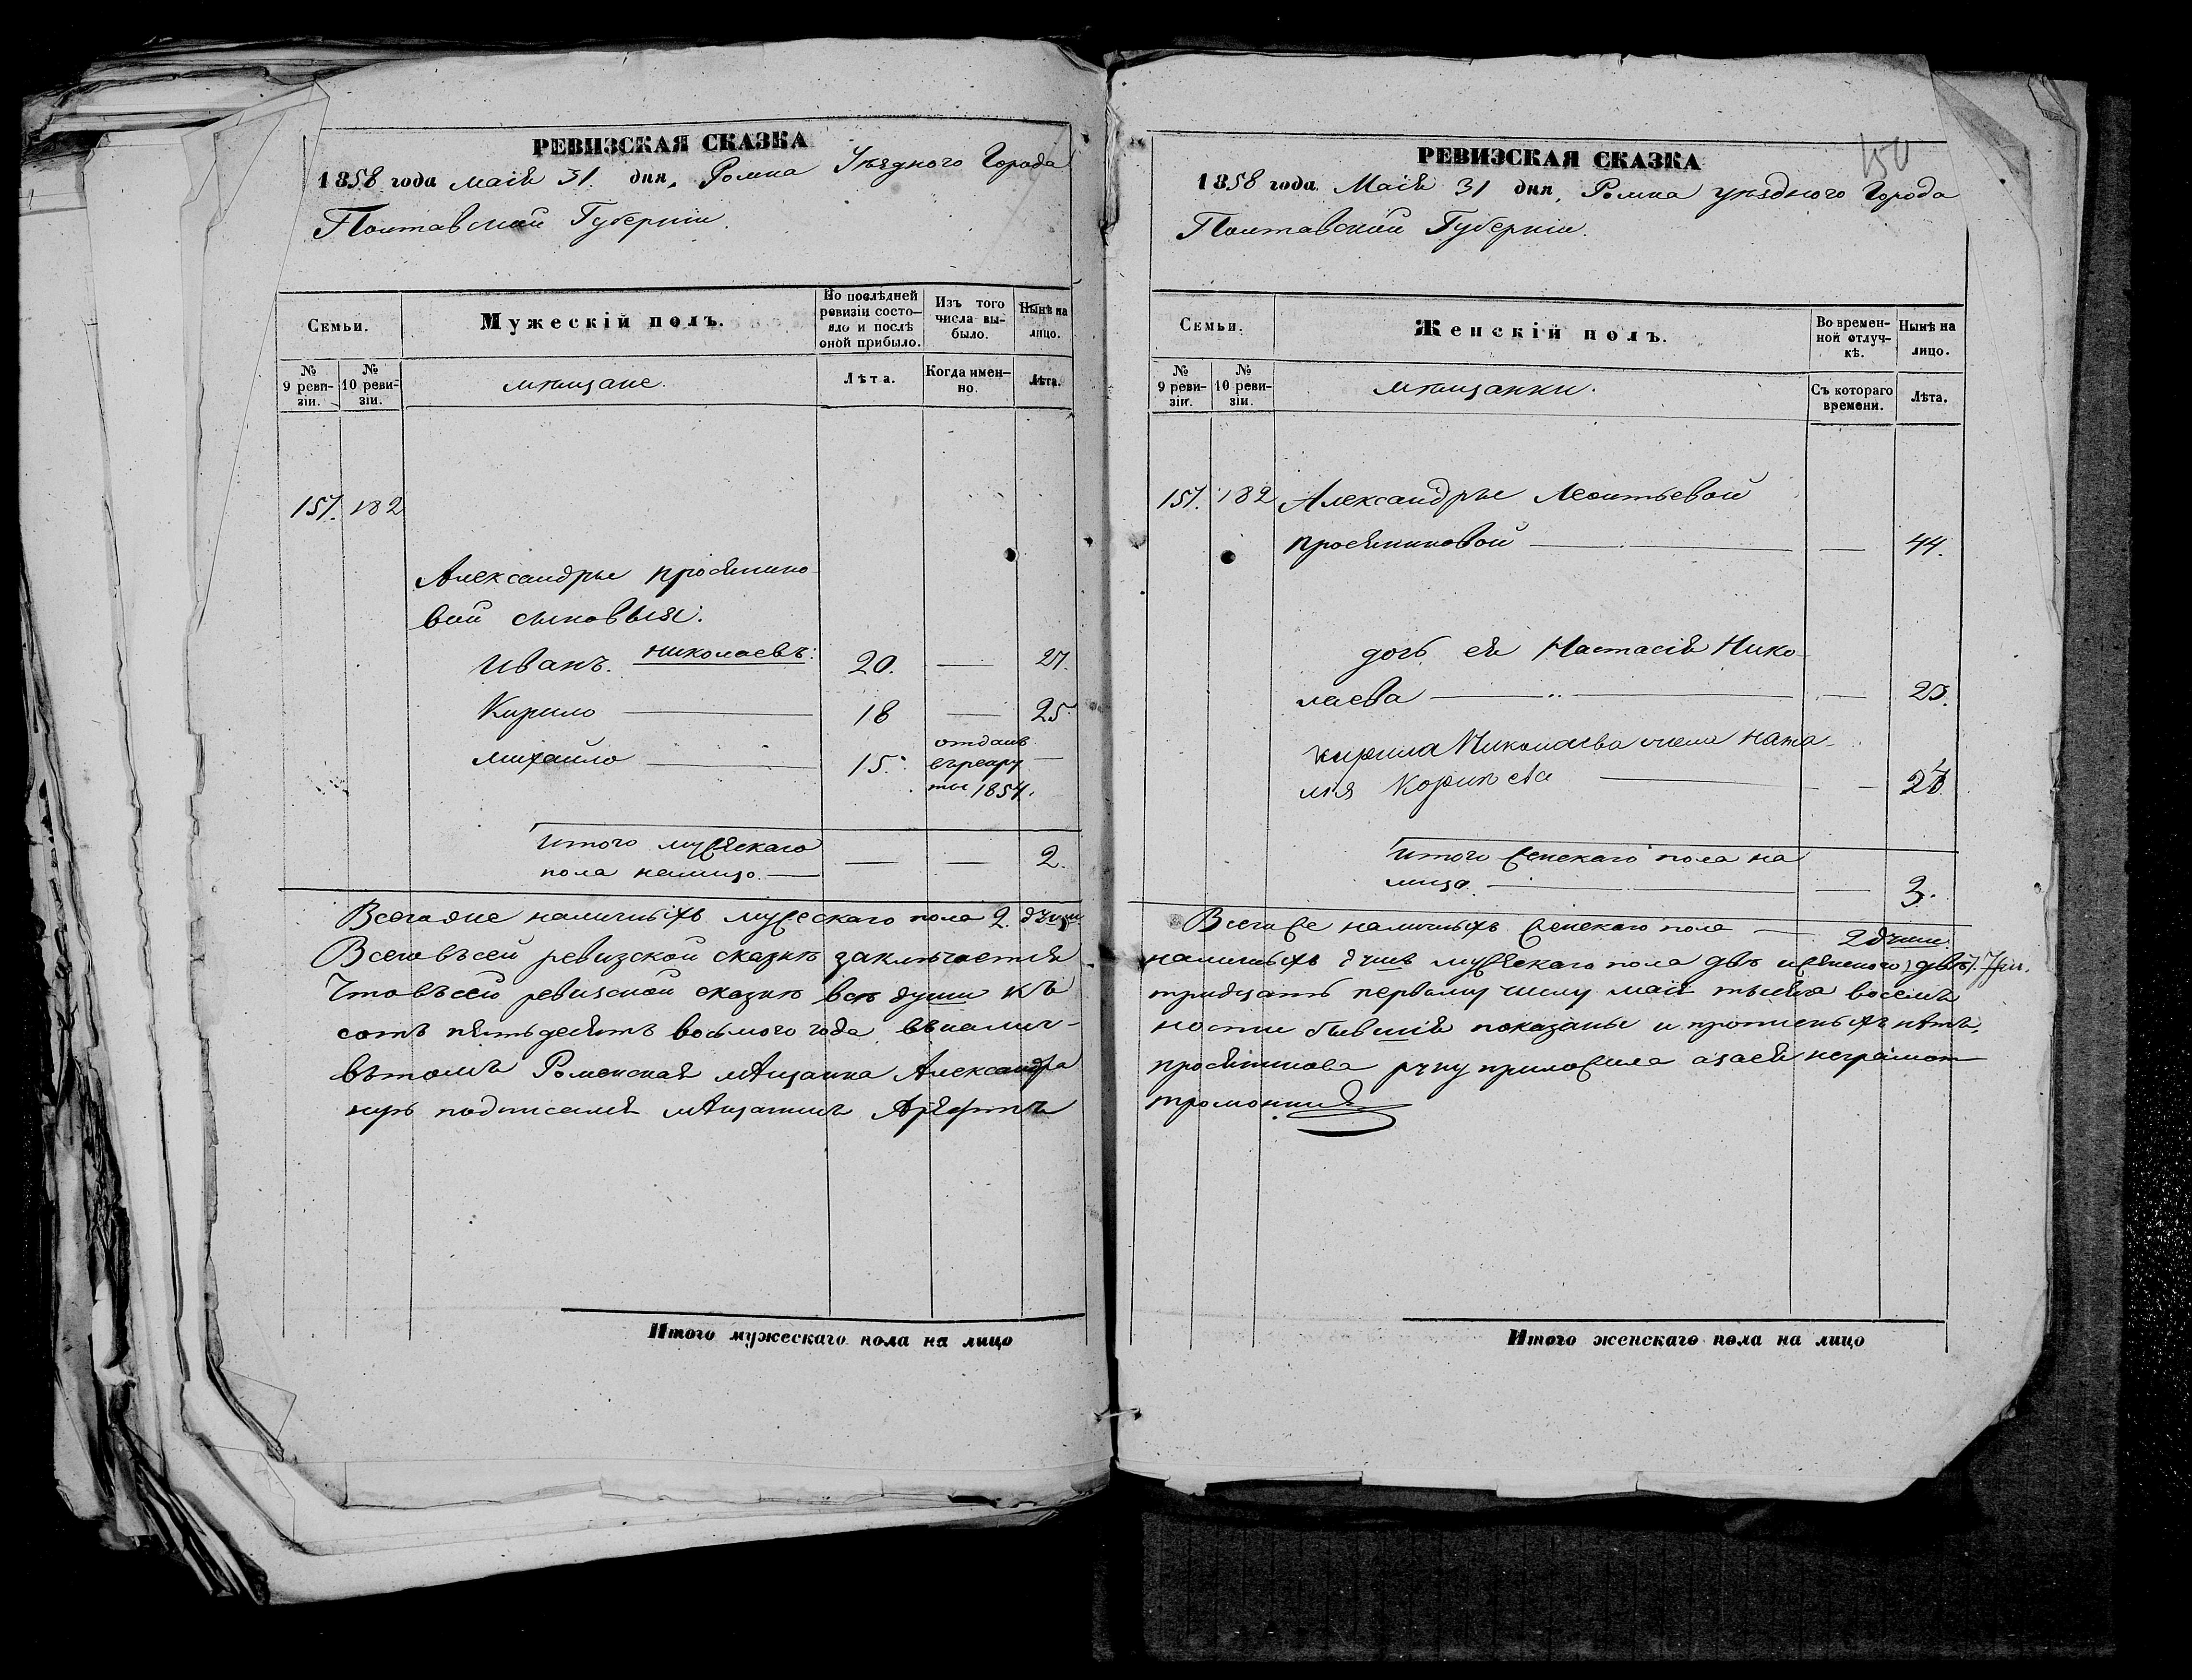 РЕВИЗСКАЯ СКАЗКА
1858 года маія 31. дня, Ромна Уѣзднаго Города
Полтавской Губерніи.
Семьи.
Мужескій полъ.
По послѣдней ревизіи состояло и послѣ оной прибыло.
Изъ того числа выбыло.
Нынѣ на лицо.
№ 9 ревизіи.
№ 10 ревизіи.
мѣщане.
Лѣта.
Когда именно.
Лѣта.
157. 182
Александры Просянико-
вой сыновья:
Иванъ. Николаевъ: 20. — 27.
Кирило — 18 — 25
Михайло — 15. отданъ
въ рекру —
ты 1854.
Итого мужескаго
пола налицо. — — — 2.
Всего же наличныхъ мужескаго пола 2. души
Всего въ сей ревизской сказкѣ заключается
Что въ сей ревизской сказкѣ всѣ души къ
сотъ пятьдесятъ восьмого года, въ налич-
въ томъ Роменская мѣщанка Александра
ную подписался мѣщанинъ
Итого мужескаго пола на лицо
150
РЕВИЗСКАЯ СКАЗКА
1858 года Маія 31 дня, Ромна уѣзднаго Города
Полтавской Губерніи.
Семьи.
Женскій полъ.
Во временной отлучкѣ.
Нынѣ на лицо.
№ 9 ревизіи.
№ 10 ревизіи.
мѣщанки.
Съ котораго времени.
Лѣта.
157. 182 Александры Леонтьевой
Просяниковой — — 44.
дочь ея Настасія Нико-
лаева — — 23.
Кирила Николаева жена Ната-
лія — —
Итого женскаго пола на
лицо. — — 3.
Всего же наличныхъ женскаго пола — 2 души.
наличныхъ душъ мужескаго пола двѣ и женскаго двѣ
тридцать первому числу маія тысяча восемь
ности бывшія показаны и прописныхъ нѣтъ,
Просяникова руку приложила а за ея неграмот-
Итого женскаго пола на лицо